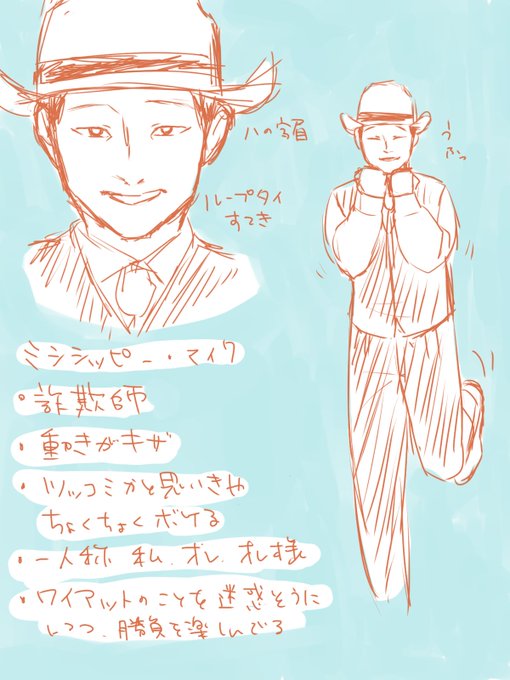 ハの字眉
ループタイ
すてき
うふっ
ミシシッピー・マイク
・詐欺師
・動きがキザ
・ツッコミかと思いきや
ちょくちょくボケる
・一人称 私、オレ、オレ様
・ワイアットのことを迷惑そうに
しつつ、勝負を楽しんでる